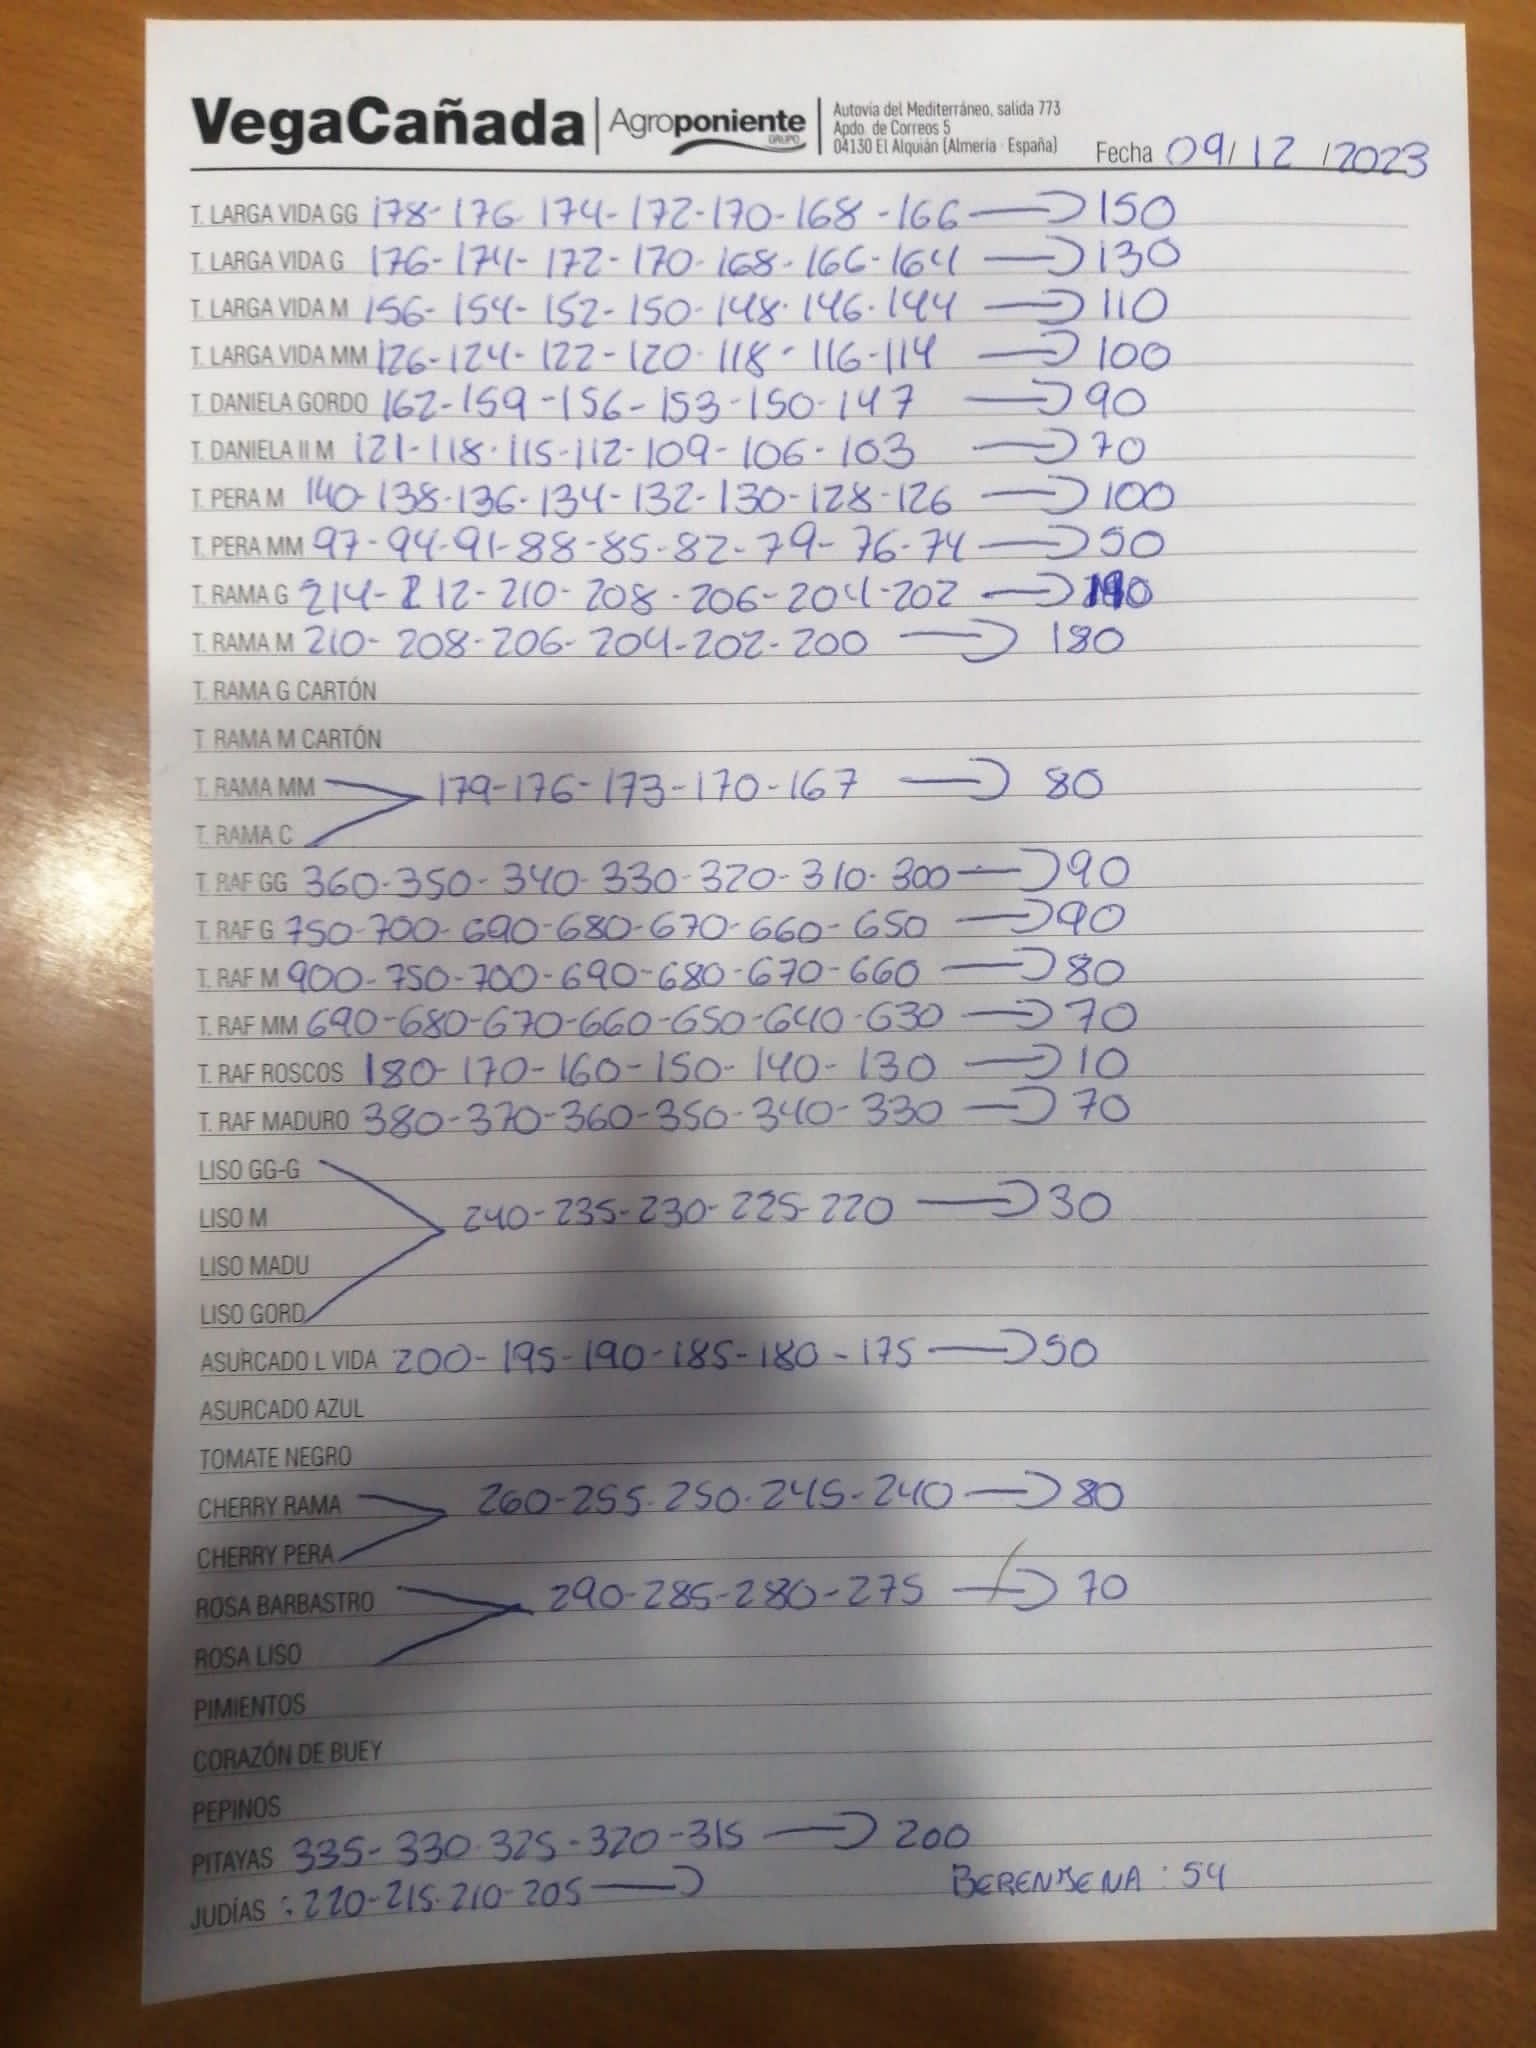 VegaCañada | Agroponiente GRUPO | Autovía del Mediterráneo, salida 773
Apdo. de Correos 5
04130 El Alquián (Almería · España) Fecha 09/12/2023
T. LARGA VIDA GG 178-176-174-172-170-168-166 → 150
T. LARGA VIDA G 176-174-172-170-168-166-164 → 130
T. LARGA VIDA M 156-154-152-150-148-146-144 → 110
T. LARGA VIDA MM 126-124-122-120-118-116-114 → 100
T. DANIELA GORDO 162-159-156-153-150-147 → 90
T. DANIELA II M 121-118-115-112-109-106-103 → 70
T. PERA M 140-138-136-134-132-130-128-126 → 100
T. PERA MM 97-94-91-88-85-82-79-76-74 → 50
T. RAMA G 214-212-210-208-206-204-202 →
T. RAMA M 210-208-206-204-202-200 → 180
T. RAMA G CARTÓN
T. RAMA M CARTÓN
T. RAMA MM 179-176-173-170-167 → 80
T. RAMA C
T. RAF GG 360-350-340-330-320-310-300 → 90
T. RAF G 750-700-690-680-670-660-650 → 90
T. RAF M 900-750-700-690-680-670-660 → 80
T. RAF MM 690-680-670-660-650-640-630 → 70
T. RAF ROSCOS 180-170-160-150-140-130 → 10
T. RAF MADURO 380-370-360-350-340-330 → 70
LISO GG-G
LISO M 240-235-230-225-220 → 30
LISO MADU
LISO GORD
ASURCADO L VIDA 200-195-190-185-180-175 → 50
ASURCADO AZUL
TOMATE NEGRO
CHERRY RAMA 260-255-250-245-240 → 80
CHERRY PERA
ROSA BARBASTRO 290-285-280-275 → 70
ROSA LISO
PIMIENTOS
CORAZÓN DE BUEY
PEPINOS
PITAYAS 335-330-325-320-315 → 200
JUDÍAS : 220-215-210-205 → BERENJENA : 54